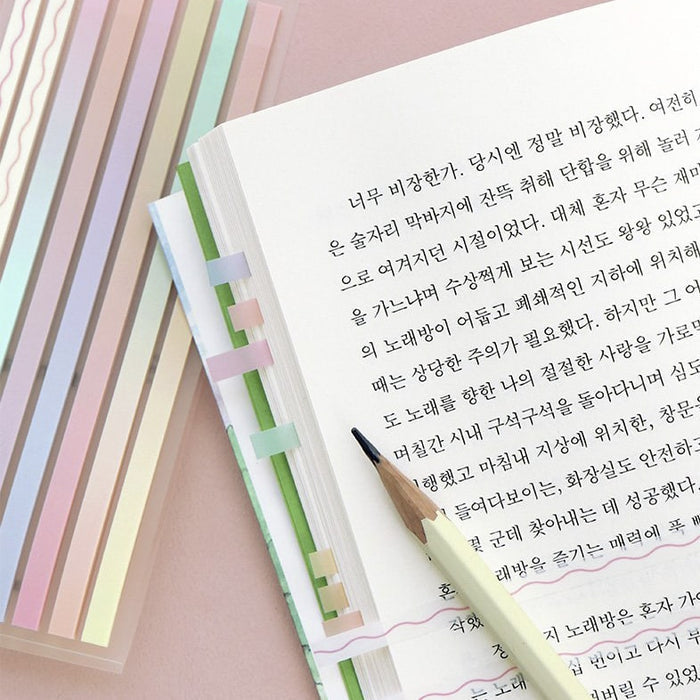 너무 비장한가. 당시엔 정말 비장했다. 여전히
은 술자리 막바지에 잔뜩 취해 단합을 위해 놀러
으로 여겨지던 시절이었다. 대체 혼자 무슨 재미
을 가느냐며 수상쩍게 보는 시선도 왕왕 있었고
의 노래방이 어둡고 폐쇄적인 지하에 위치해
때는 상당한 주의가 필요했다. 하지만 그 어
도 노래를 향한 나의 절절한 사랑을 가로막
며칠간 시내 구석구석을 돌아다니며 심도
행했고 마침내 지상에 위치한, 창문
들여다보이는, 화장실도 안전하고
몇 군데 찾아내는 데 성공했다.
혼 래방을 즐기는 매력에 푹
작했 지 노래방은 혼자 가
정 십 번이고 다시 부
는 노래 버릴 수 있었